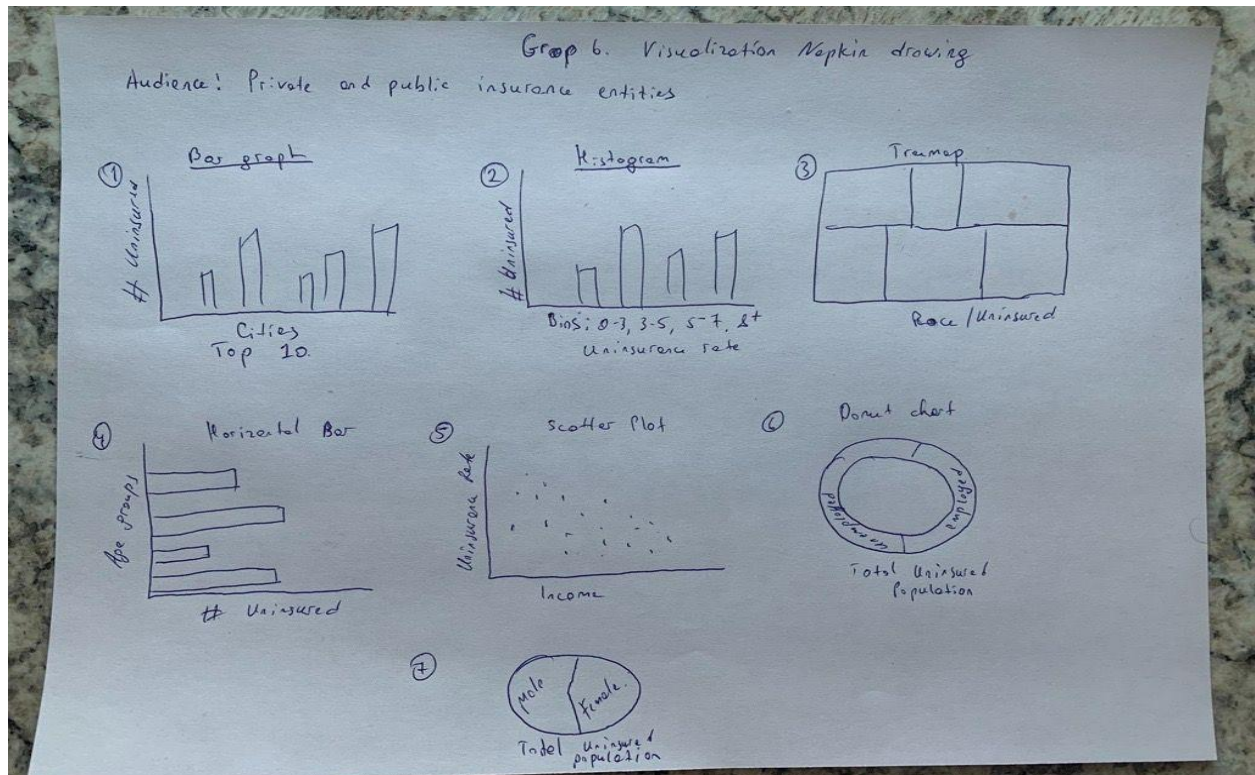 Group 6. Visualization Napkin drawing
Audience: Private and public insurance entities
① Bar graph
# Uninsured
Cities
Top 10.
② Histogram
# Uninsured
Bins: 0-3, 3-5, 5-7, 8+
Uninsurance rate
③ Treemap
Race / Uninsured
④ Horizontal Bar
Age groups
# Uninsured
⑤ Scatter Plot
Uninsurance Rate
Income
⑥ Donut chart
Unemployed
Employed
Total Uninsured
Population
⑦
Male
Female.
Total Uninsured
population